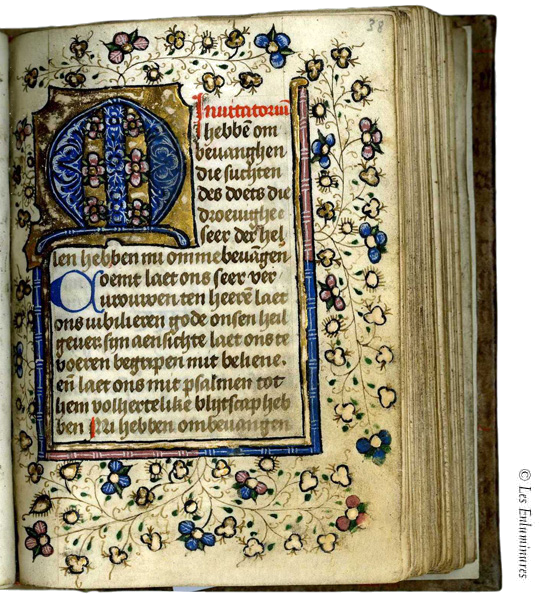 38
Inuitatoriū
M i hebbē om
beuanghen
die suchten
des doets die
droeuighe
seer der hel
len hebben mi omme beuāgen
Coemt laet ons seer ver
urouwen ten heerē laet
ons iubilieren gode onsen heil
geuer sijn aensichte laet ons te
voeren begripen mit beliene.
eñ laet ons mit psalmen tot
hem volhertelike blijtscap heb
ben Mi hebben ombeuangen
© Les Enluminures